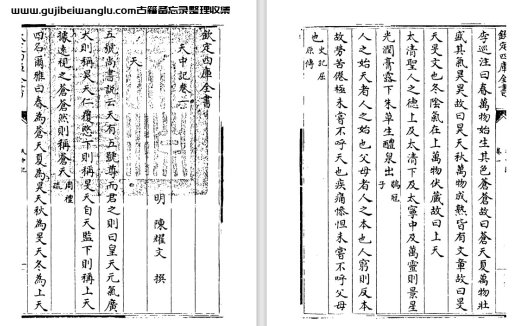 www.gujibeiwanglu.com古籍备忘录整理收集
欽定四庫全書
天中記卷一
明 陳耀文 撰
天
五號尚書說云天有五號尊而君之則曰皇天元氣廣
大則稱昊天仁覆愍下則稱旻天自天監下則稱上天
據遠視之蒼蒼然則稱蒼天周禮疏
四名爾雅曰春為蒼天夏為昊天秋為旻天冬為上天
天中記
欽定四庫全書
卷一
李巡注曰春萬物始生其色蒼蒼故曰蒼天夏萬物壯
盛其氣昊昊故曰昊天秋萬物成熟皆有文章故曰旻
天旻文也冬陰氣在上萬物伏藏故曰上天
太清聖人之德上及太清下及太寧中及萬靈則景星
光潤膏露下朱草生醴泉出鶡冠子
人之始天者人之始也父母者人之本也人窮則反本
故勞苦倦極未嘗不呼天也疾痛慘怛未嘗不呼父母
也史記屈原傳